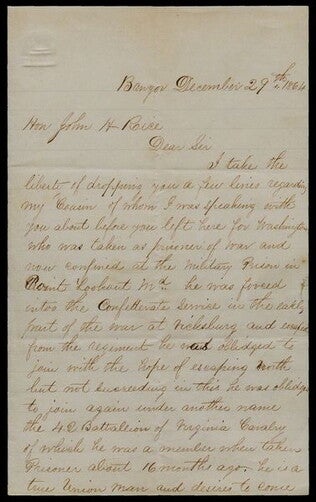 Bangor December 29th 1864
Hon John H Rice
Dear Sir
I take the
liberty of droping you a few lines regarding
my Cousin of whom I was speaking with
you about before you left here for Washington
who was taken as prisoner of war and
now confined at the Military Prison in
Point Lookout Md he was forced
into the Confetterate Service in the early
part of the war at Vicksburg and
from the regiment he was obliedged to
join with the hope of escaping North
but not succeeding in this he was obliedge
to join again under another name
the 42 Battallion of Virginia Cavalry
of which he was a member when taken
Prisoner about 16 months ago. he is a
true Union man and desires to come